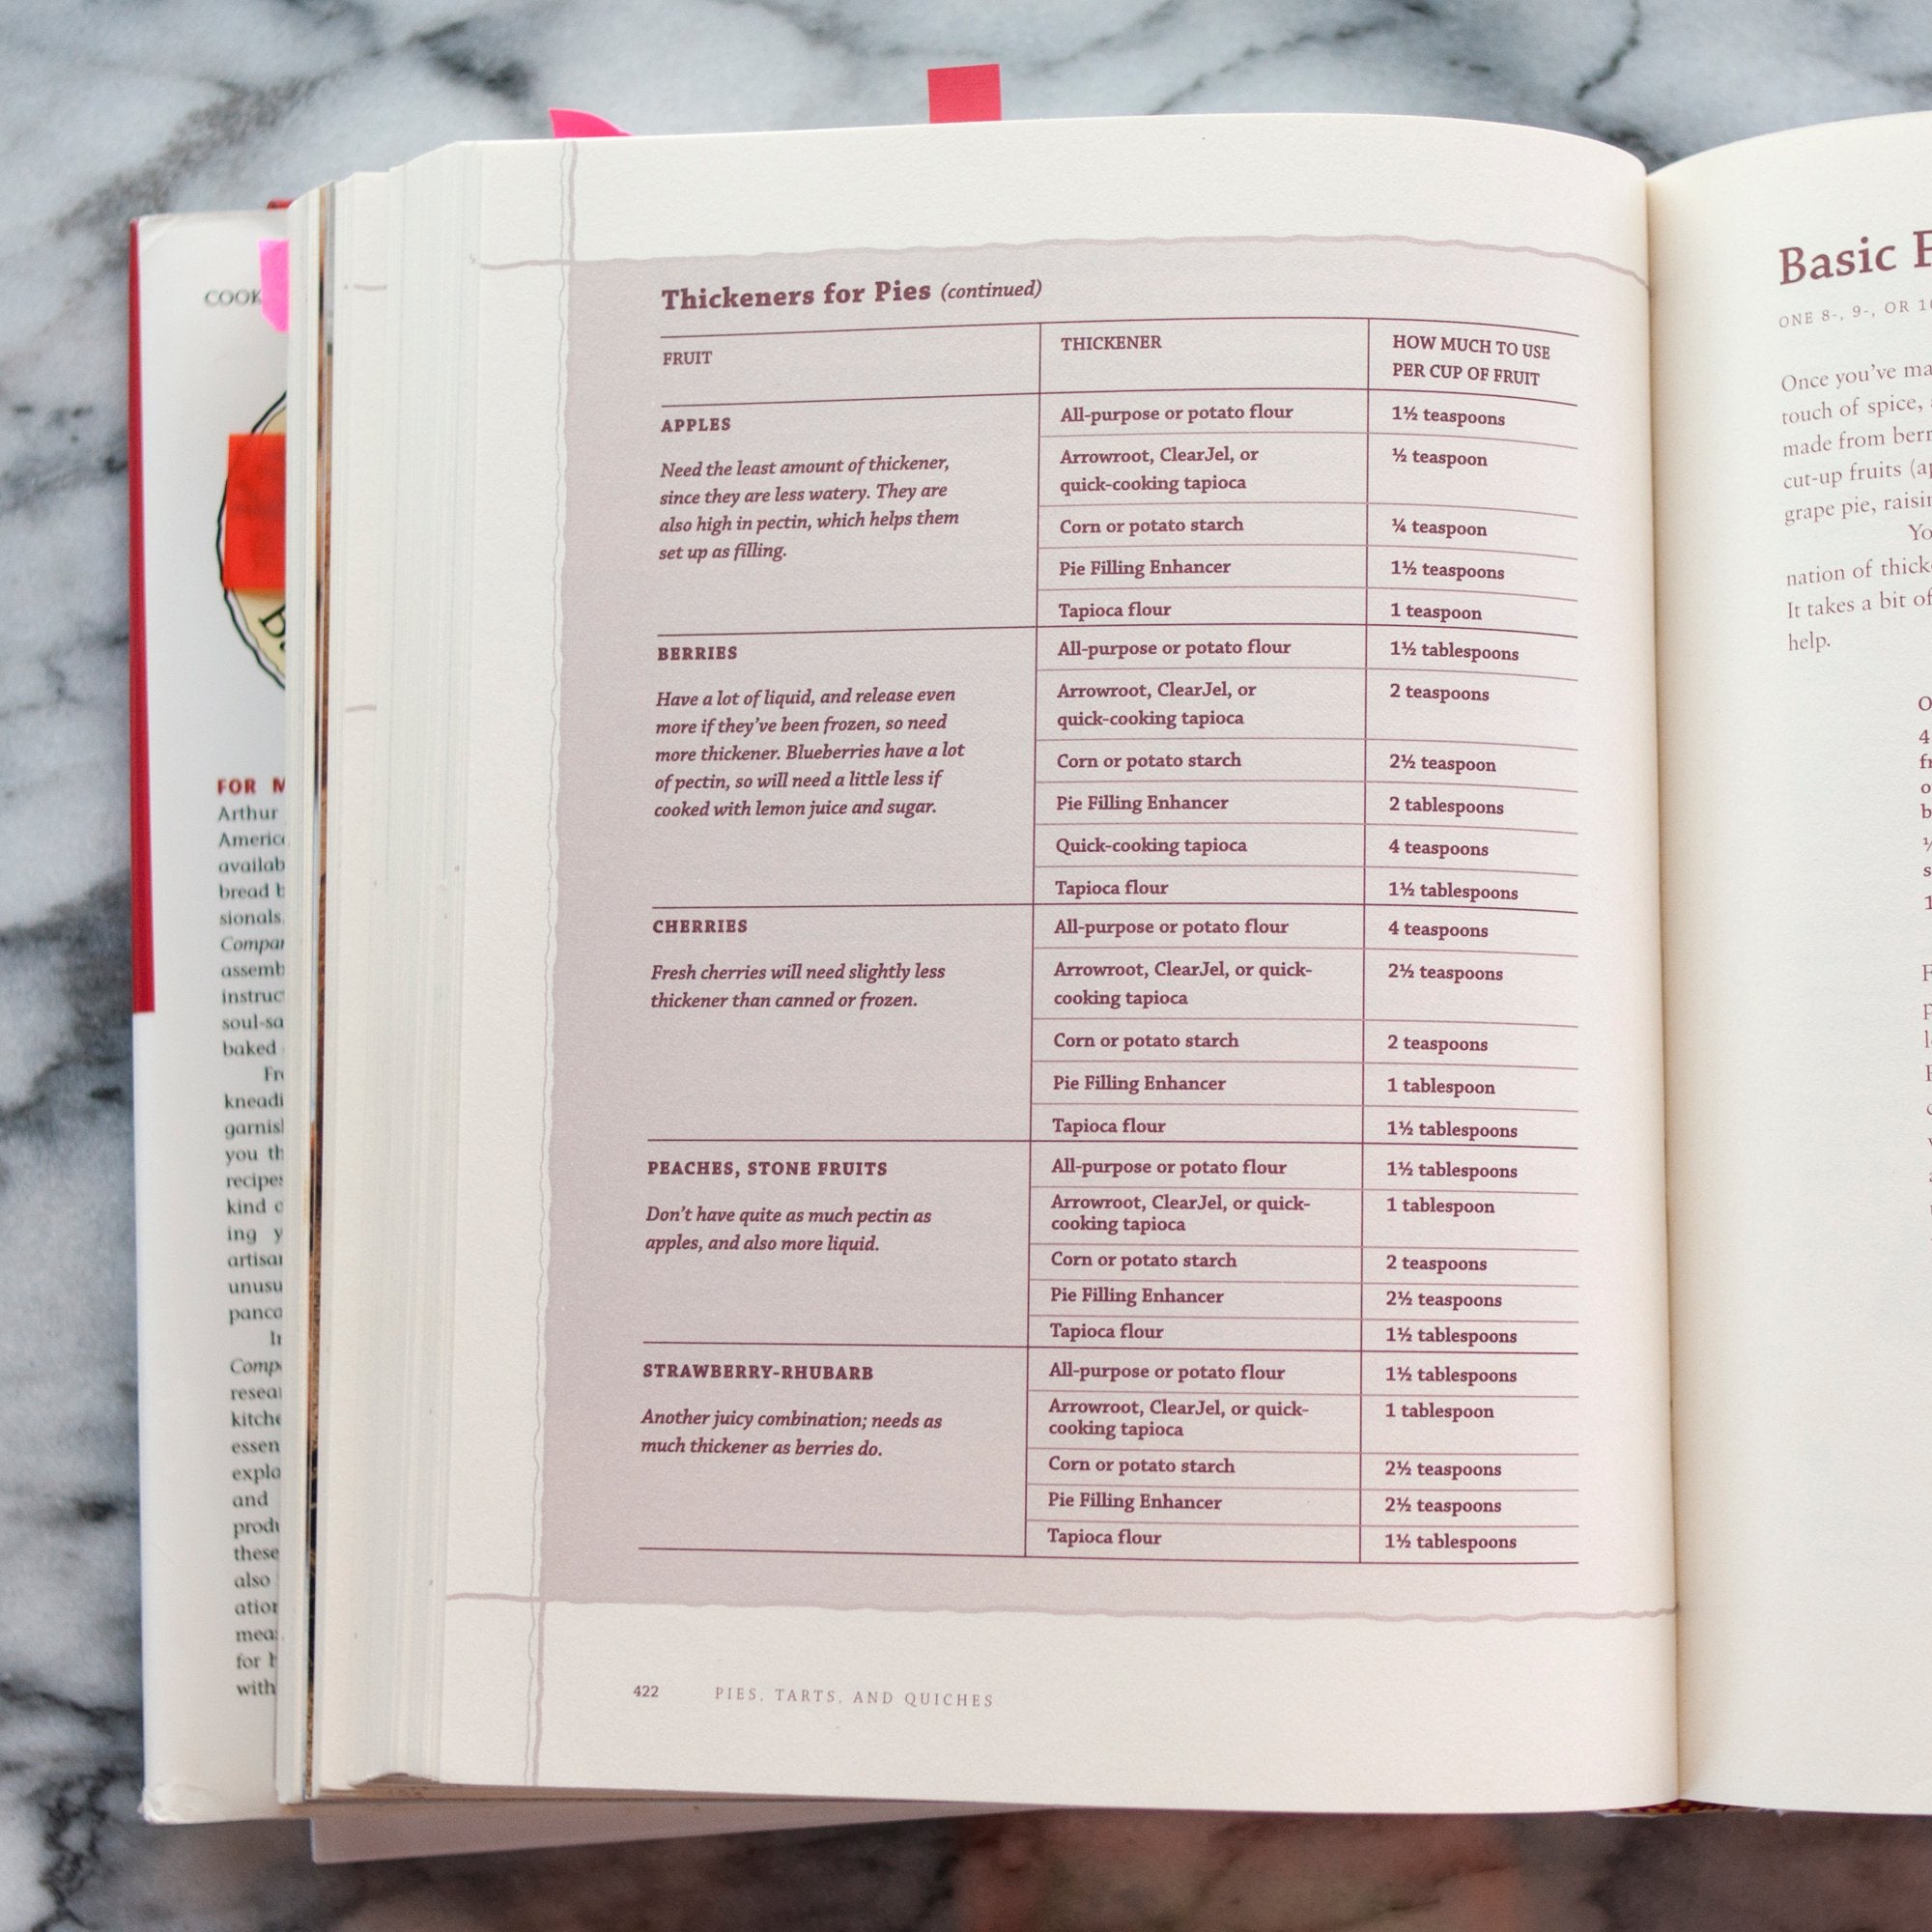 COOK
FOR M
Arthur
availab
bread b
sionals.
Compan
assemb
instruc
soul-sa
baked
kneadi
garnis
you th
kind o
ing y
artisan
unusu
panca
kitche
essen
explo
and
these
also
for
with
Thickeners for Pies (continued)
FRUIT THICKENER HOW MUCH TO USE
PER CUP OF FRUIT
APPLES
Need the least amount of thickener,
since they are less watery. They are
also high in pectin, which helps them
set up as filling.
All-purpose or potato flour 1½ teaspoons
Arrowroot, ClearJel, or ½ teaspoon
quick-cooking tapioca
Corn or potato starch ¼ teaspoon
Pie Filling Enhancer 1½ teaspoons
Tapioca flour 1 teaspoon
BERRIES
Have a lot of liquid, and release even
more if they've been frozen, so need
more thickener. Blueberries have a lot
of pectin, so will need a little less if
cooked with lemon juice and sugar.
All-purpose or potato flour 1½ tablespoons
Arrowroot, ClearJel, or 2 teaspoons
quick-cooking tapioca
Corn or potato starch 2½ teaspoon
Pie Filling Enhancer 2 tablespoons
Quick-cooking tapioca 4 teaspoons
Tapioca flour 1½ tablespoons
CHERRIES
Fresh cherries will need slightly less
thickener than canned or frozen.
All-purpose or potato flour 4 teaspoons
Arrowroot, ClearJel, or quick- 2½ teaspoons
cooking tapioca
Corn or potato starch 2 teaspoons
Pie Filling Enhancer 1 tablespoon
Tapioca flour 1½ tablespoons
PEACHES, STONE FRUITS
Don't have quite as much pectin as
apples, and also more liquid.
All-purpose or potato flour 1½ tablespoons
Arrowroot, ClearJel, or quick- 1 tablespoon
cooking tapioca
Corn or potato starch 2 teaspoons
Pie Filling Enhancer 2½ teaspoons
Tapioca flour 1½ tablespoons
STRAWBERRY-RHUBARB
Another juicy combination; needs as
much thickener as berries do.
All-purpose or potato flour 1½ tablespoons
Arrowroot, ClearJel, or quick- 1 tablespoon
cooking tapioca
Corn or potato starch 2½ teaspoons
Pie Filling Enhancer 2½ teaspoons
Tapioca flour 1½ tablespoons
422 PIES, TARTS, AND QUICHES
Basic
ONE 8-, 9-, OR
Once you've ma
touch of spice,
made from berr
cut-up fruits (ap
grape pie, raisin
Yo
nation of thick
It takes a bit of
help.